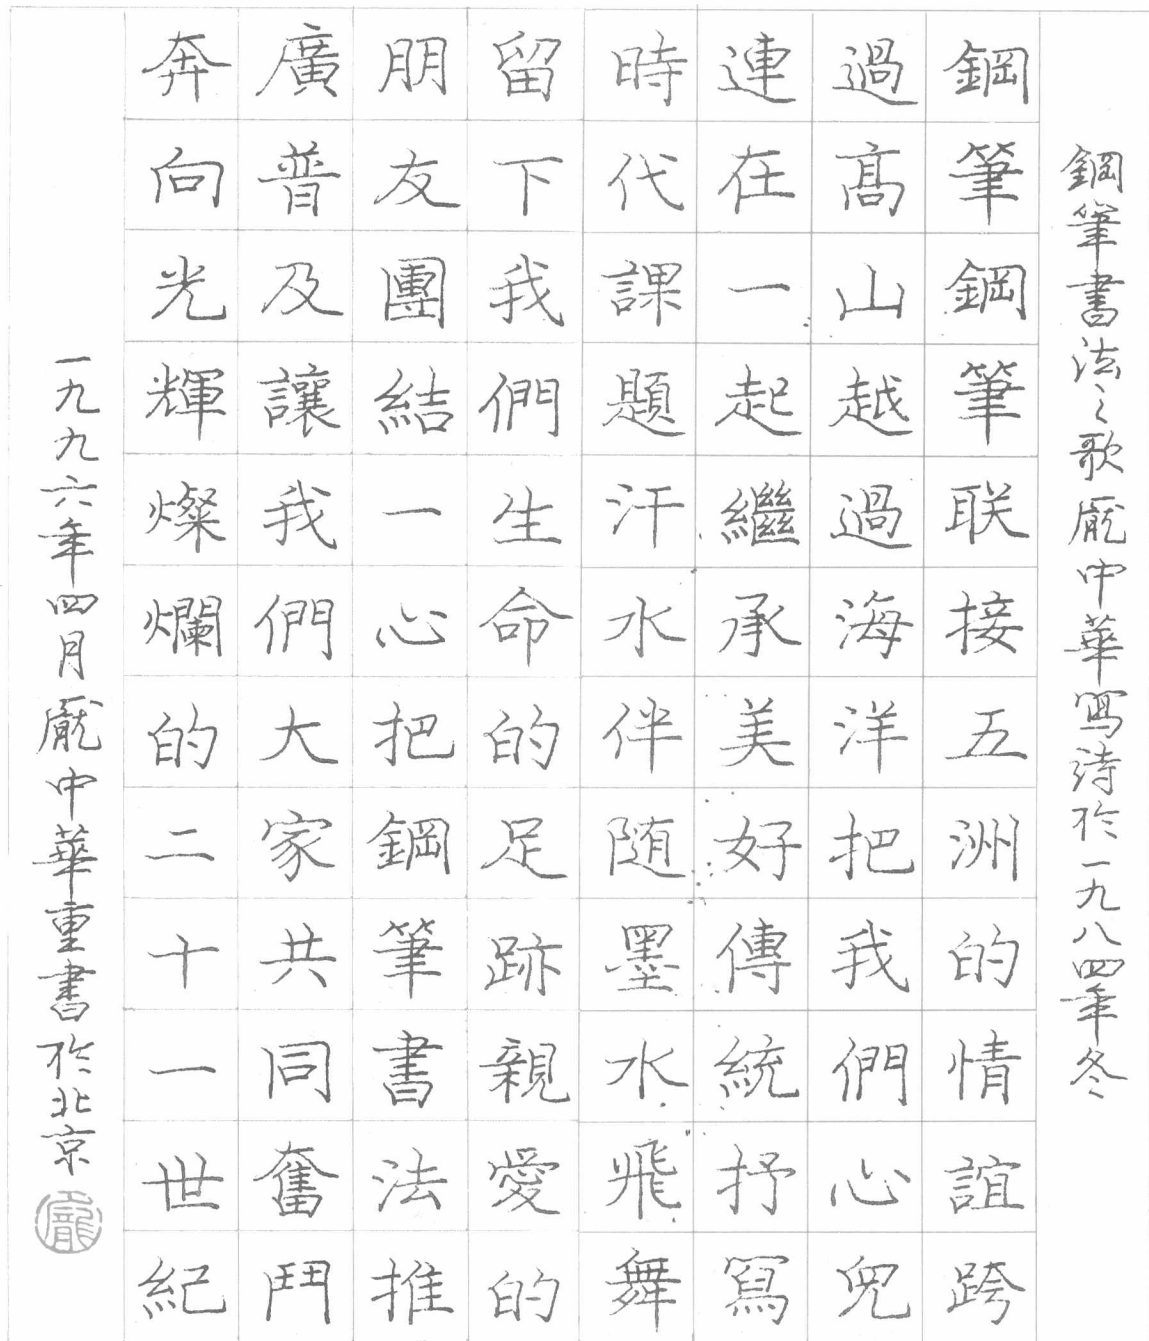 鋼筆書法之歌龐中華寫詩於一九八四年冬
鋼筆鋼筆联接五洲的情誼跨
過高山越過海洋把我們心兒
連在一起繼承美好傳統抒寫
時代課題汗水伴随墨水飛舞
留下我們生命的足跡親愛的
朋友團結一心把鋼筆書法推
廣普及讓我們大家共同奮鬥
奔向光輝燦爛的二十一世紀
一九九六年四月龐中華重書於北京
龐